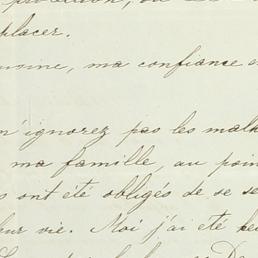 placer.
ma confiance
n'ignorez pas les malh
ma famille, au poin
s ont été obligés de se se
eur vie. Moi j'ai été heu